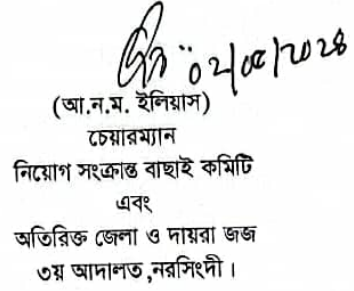 ০২/০৫/২০২৪
(আ.ন.ম. ইলিয়াস)
চেয়ারম্যান
নিয়োগ সংক্রান্ত বাছাই কমিটি
এবং
অতিরিক্ত জেলা ও দায়রা জজ
৩য় আদালত,নরসিংদী।